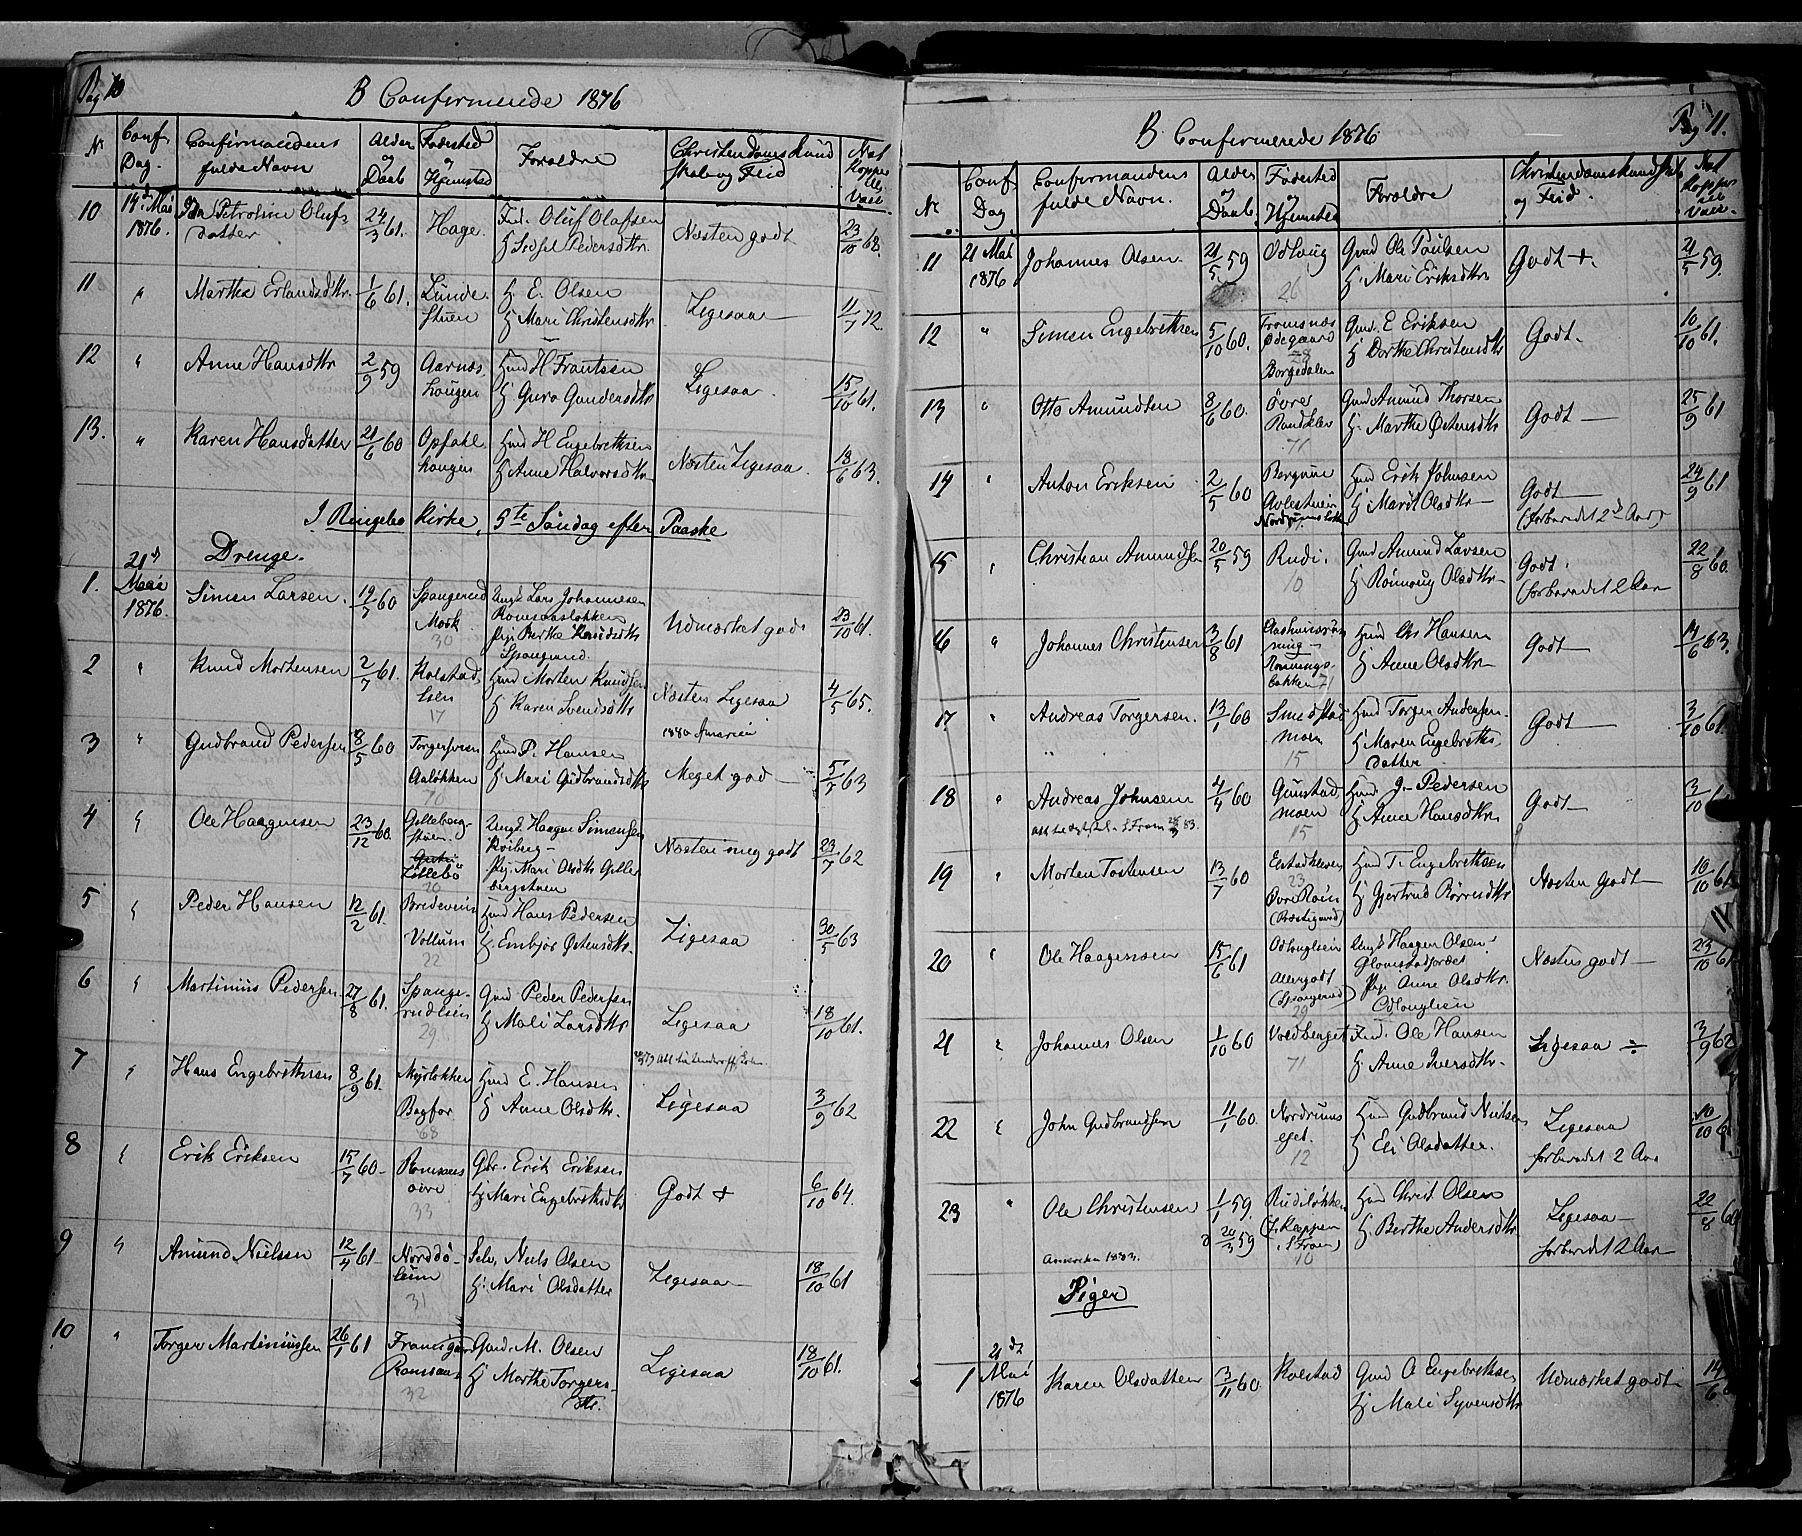 Pag 10
B Confirmerede 1876
Nr Conf Dag. Confirmandens fulde Navn Alder og Daab Fødested og Hjemsted Forældre Christendomskundskab og Flid Nat Kopper ell. Vacc
10 14de Mai 1876. Ida Petroline Olufsdatter 24/3 61. Hage. Ind. Oluf Olafsen
H Sidsel Pedersdtr. Næsten godt 23/10 62.
11 " Marthe Erlandsdtr. 1/6 61. Lundestuen H E. Olsen
H Mari Christensdtr. Ligesaa 11/7 72.
12 " Anne Hansdtr 2/9 59 Aarnæshougen Hmd H Frantsen
H Guro Gundersdtr Ligesaa. 15/10 61.
13. " Karen Hansdatter 21/6 60 Opsahlhougen Hmd H Engebrethsen
H Anne Halvorsdtr Næsten Ligesaa. 18/6 63.
I Ringebo Kirke, 5te Søndag efter Paaske
Drenge.
1. 21de Mai 1876. Simen Larsen. 19/7 60 Spangerud Moik 30 Ungk Lars Johannesen
Romsaasløkken
Pige Berthe Knudsdtr
Spangrud. Udmærket godt 23/10 61.
2 " Knud Mortensen 2/7 61. Kolstadlien 17 Hmd Morten Knudsen
H Karen Svendsdtr Næsten Ligesaa 4/5 65.
1880 Amerien
3 " Gudbrand Pedersen 8/5 60 Aaløkken 70 Hmd P. Hansen
H Mari Gudbrandsdtr Meget god 5/7 63
4 " Ole Haagensen 23/12 60. Gillebergstuen Lillebö 20 Ungk. Haagen Simensen
Pige Mari Olsdtr Gillebergstuen Næsten meg godt 23/7 62
5 " Peder Hansen 12/2 61. Vollum 22 Hmd Hans Pedersen
H. Embjør Østensdtr. Ligesaa 30/5 63
6 " Martinius Pedersen 27/8 61. Spangerudlien 29. Gmd Peder Pedersen
H Mali Larsdtr Ligesaa 18/10 61.
7 " Hans Engebrethsen 8/9 61. Myrløkken Bagfor 68 Hmd E. Hansen
H Anne Olsdtr. Ligesaa 3/9 62
8 " Erik Eriksen 15/7 60 Romsaas øvre 33 Gbr. Erik Eriksen
H Mari Engebrethsdtr Godt + 6/10 64.
9 " Amund Nielsen 12/4 61 Norddølum 31 Selv. Niels Olsen
H. Mari Olsdatter Ligesaa 18/10 61
10. " Torger Martiniussen 26/1 61 Framigard Romsaas 32 Gmd. M. Olsen
H Marthe Torgersdtr. Ligesaa 18/10 61.
Pag 11.
B. Confirmerede 1876.
Nr Conf Dag Confirmandens fulde Navn. Alder og Daab. Fødested og Hjemsted Forældre Christendomskundskab og Flid Nat Kopper ell Vacc
11 21 Mai 1876 Johannes Olsen. 21/5 59 Odloug 26 Gmd Ole Paulsen
H. Mari Eriksdtr Godt +. 21/5 59.
12 " Simen Engebrethsen 5/10 60. Fromsnæs Ødegaard 28 Borgedalen Gmd. E Eriksen
H Dorthe Christensdtr Godt. 10/10 61.
13 " Otto Amundsen 8/6 60. Øvre Randklev 71 Gmd Amund Thorsen
H. Marthe Østensdtr Godt 25/9 61
14 " Anton Eriksen 2/5 60 Hmd Erik Johnsen
H Marit Olsdtr Godt
(forberedet 2de Aar) 24/9 61
15 " Christian Amundsen 20/5 59 Rudi. 10 Gmd Amund Larsen
H Rønnaug Olsdtr Godt.
forberedet 2 Aar 22/8 60.
16 " Johannes Christensen 3/8 61 Rønningsbakken 71 Hmd Chs Hansen
H Anne Olsdtr Godt 14/6 63.
17 " Andreas Torgersen. 13/1 60 Smedstadmoen 15 Hmd Torger Andersen
H Maren Engebrethsdatter Godt 3/10 61.
18 " Andreas Johnsen 4/4 60 Gunstadmoen 15 Hmd J. Pedersen
H Anne Hansdtr Godt 3/10
19 " Morten Tostensen 13/7 60 23 (Præstgaard) Hmd T. Engebrethsen
H Gjertrud Børresdtr Næsten Godt 10/10 61
20 " Ole Haagensen 15/6 61 Odlouglien (Spangerud) 29 Ungk Haagen Olsen
Pige Anne Olsdtr.
Odlouglien Næsten godt 23/10 61
21 " Johannes Olsen 1/10 60 Voldberget 71 Ind. Ole Hansen
H. Anne Iversdtr. Ligesaa ÷ 3/9 62
22 " John Gudbrandsen 11/1 60. Nordrumsejet. 12 Hmd Gudbrand Nielsen
H Eli Olsdatter. Ligesaa
forberedet 2 Aar 10/10 6
23 " Ole Christensen 1/1 59. D 20/3 59 Rudiløkken 10 Hmd Christ Olsen
H Berthe Andersdtr Ligesaa
forberedet 2 Aar 22/8 60
Amerika 1883.
Piger
1 21de Mai 1876 Karen Olsdatter 3/11 60. Kolstad Gmd O Engebrethsen
H Mali Syversdtr Udmærket godt 14/6